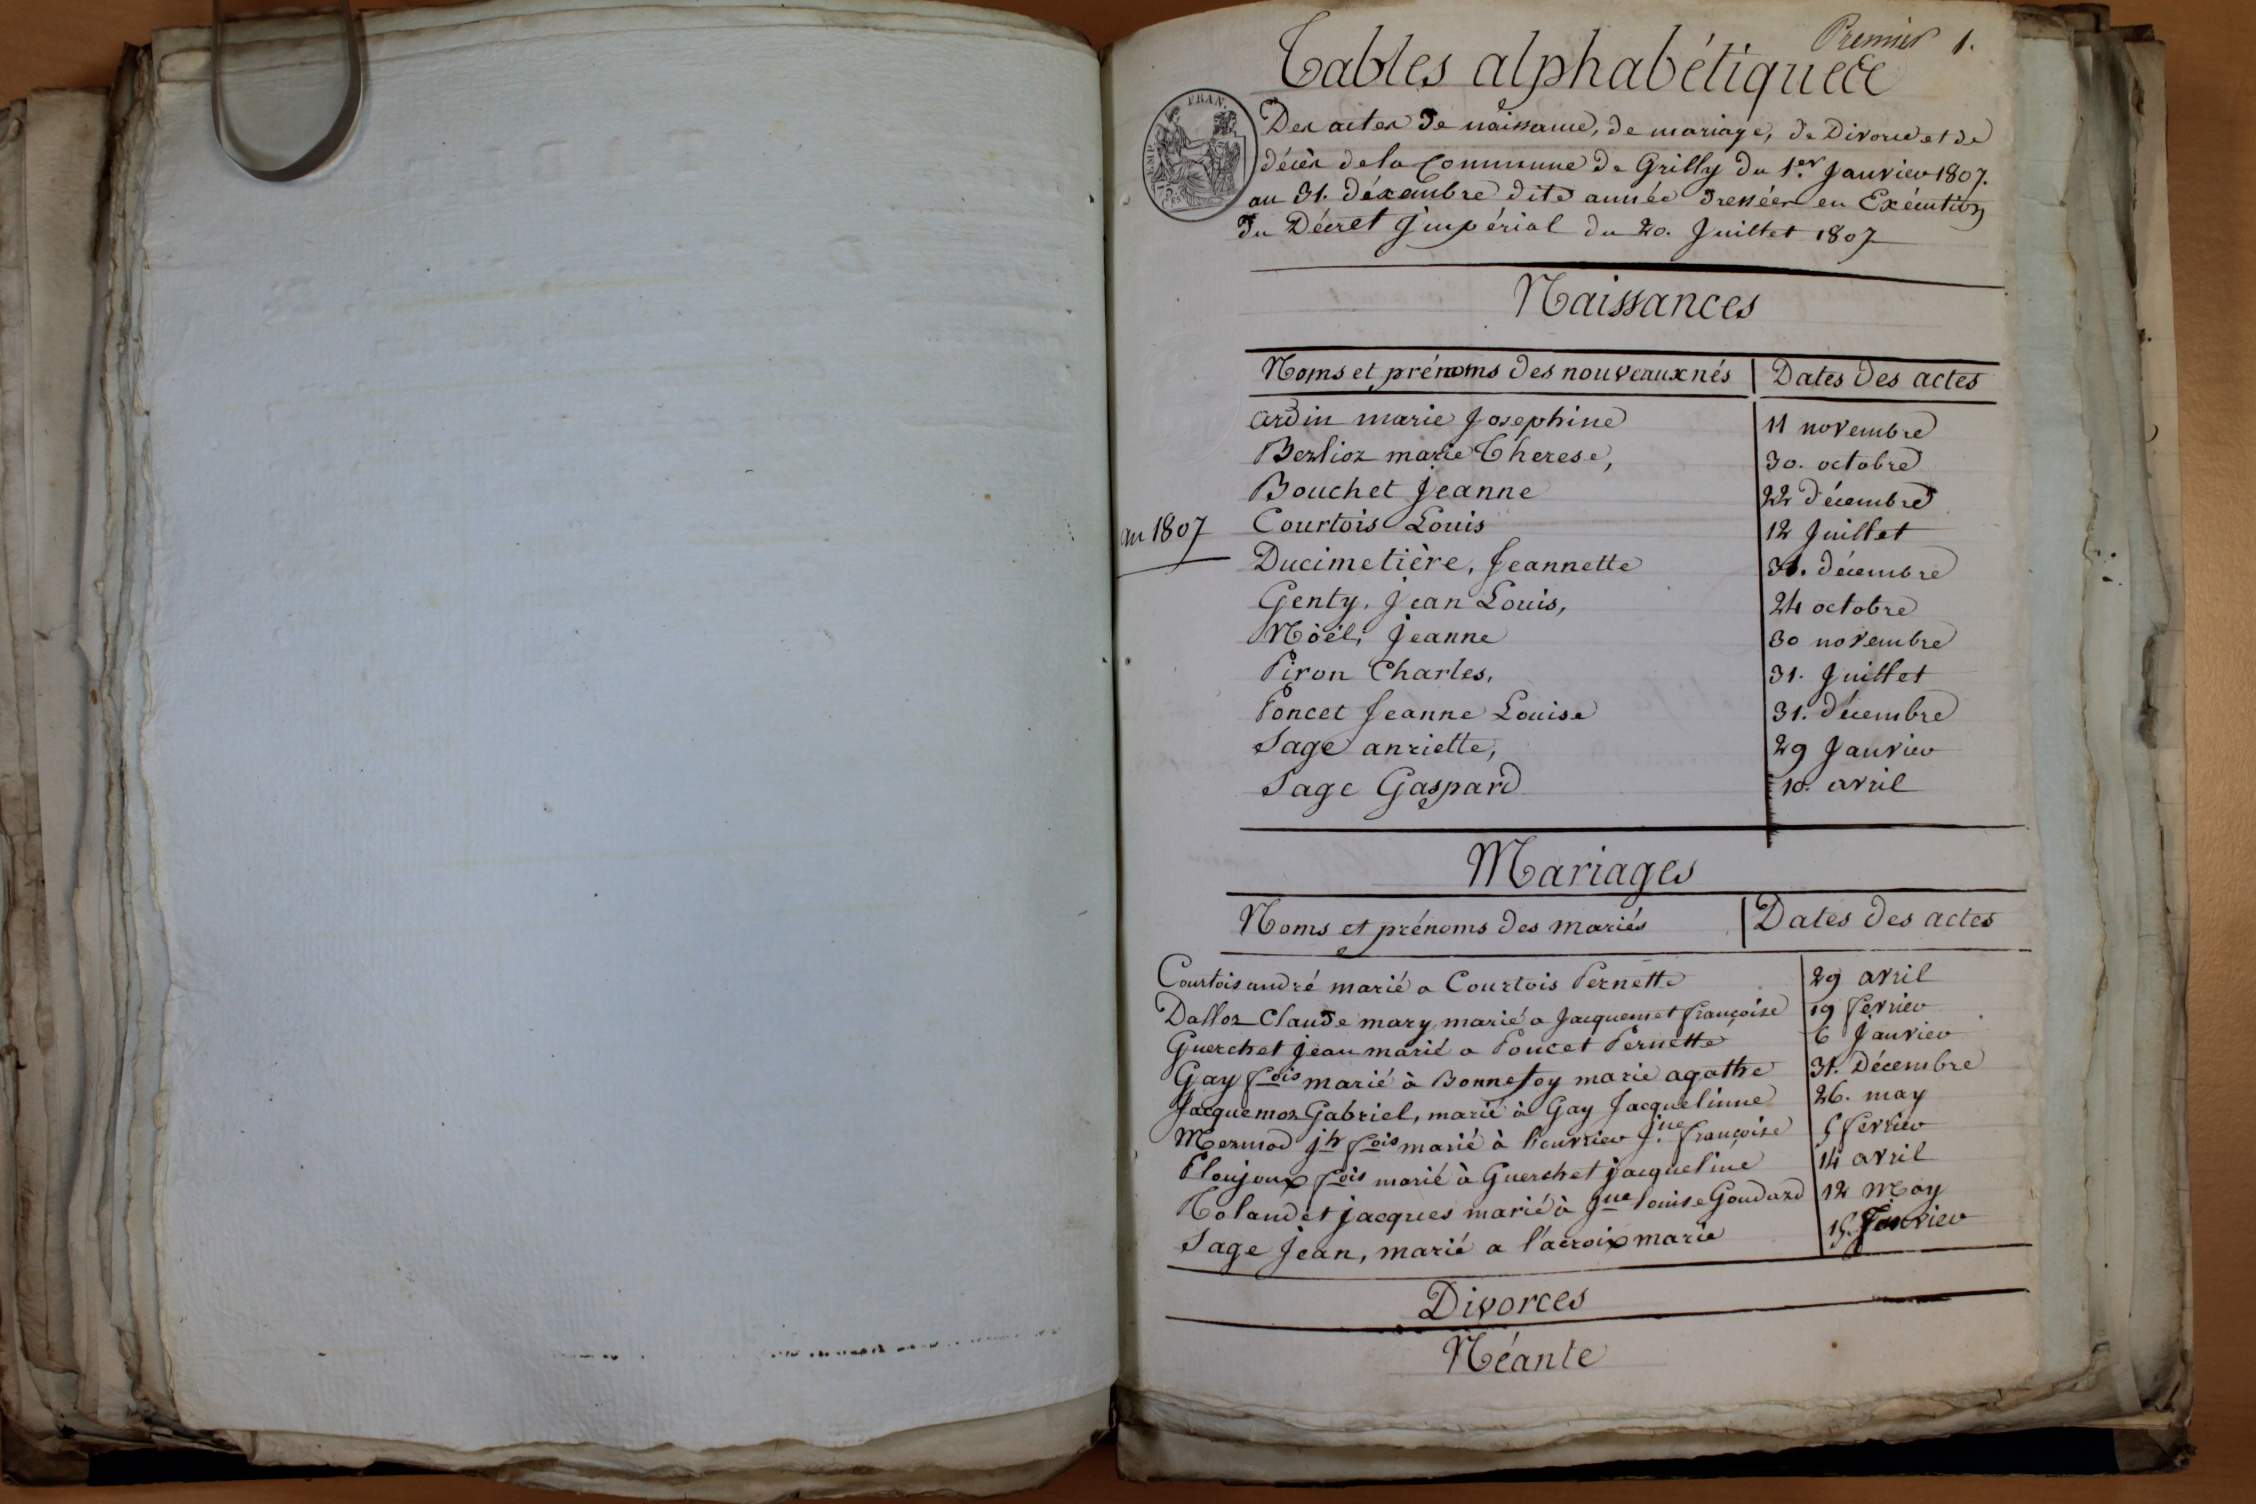 Premier 1.
Tables alphabétiques
EMP. FRAN.
Des actes de naissance, de mariage, de Divorce et de
décès de la Commune de Grilly du 1.er Janvier 1807.
au 31. décembre dite année dressées en Exécution
du Décret Impérial du 20. Juillet 1807
Naissances
Noms et prénoms des nouveaux nés | Dates des actes
ardin marie Josephine 11 novembre
Berlioz marie Therese, 30. octobre
Bouchet Jeanne 22 décembre
an 1807
Courtois Louis 12 Juillet
Ducimetière, Jeannette décembre
Genty, Jean Louis, 24 octobre
Nöel, Jeanne 30 novembre
Piron Charles, 31. Juillet
Poncet Jeanne Louise 31. décembre
Sage anriette, 29 Janvier
Sage Gaspard 10. avril
Mariages
Noms et prénoms des mariés | Dates des actes
Courtois andré marié a Courtois Pernette 29 avril
Dalloz Claude mary marié a Jacquemet françoise 19 fevrier
Guerchet jean marié a Poncet Pernette 6 Janvier
Gay fois marié à Bonnefoy marie agathe 31. Décembre
Jacquemoz Gabriel, marié à Gay Jacquelinne 26. may
Mermod jh fois marié à françoise 5 fevrier
Ploujoux fois marié à Guerchet jacqueline 14 avril
Rolandet jacques marié à Jne louise Goudard 12 May
Sage Jean, marié a l'acroix marie 15. Janvier
Divorces
Néante